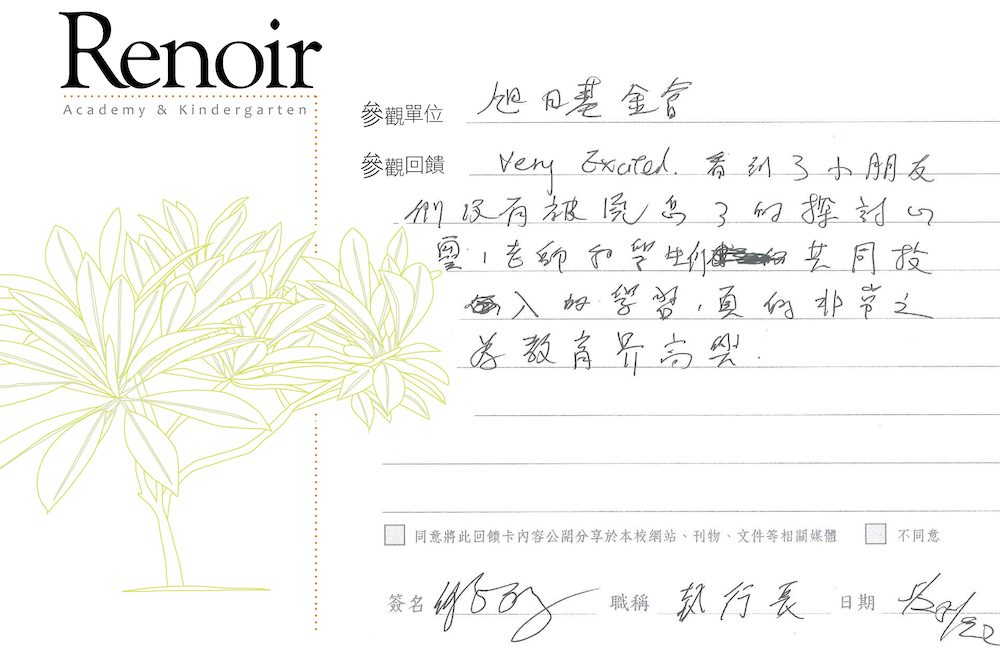 Renoir
Academy & Kindergarten
參觀單位 旭日基金會
參觀回饋 Very Excited. 看到了小朋友
們沒有被 了的探討心
靈，老師和學生們 共同投
入的學習，真的非常之
為教育界高興.
同意將此回饋卡內容公開分享於本校網站、刊物、文件等相關媒體 不同意
簽名 職稱 執行長 日期